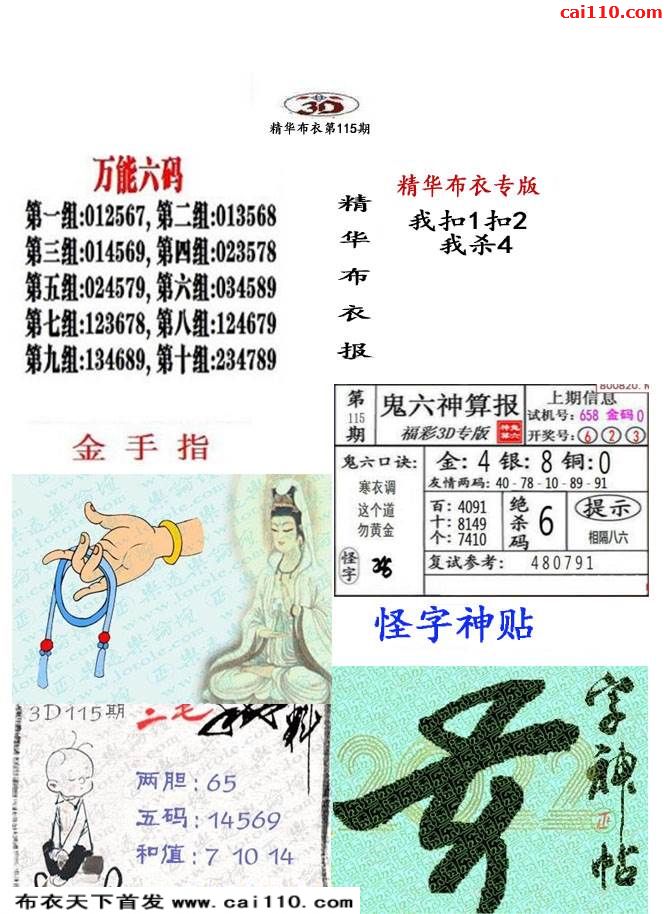 cai110.com
3D
精华布衣第115期
万能六码
第一组:012567, 第二组:013568
第三组:014569, 第四组:023578
第五组:024579, 第六组:034589
第七组:123678, 第八组:124679
第九组:134689, 第十组:234789
精华布衣报
精华布衣专版
我扣1扣2
我杀4
金手指
第115期
鬼六神算报
福彩3D专版
上期信息
试机号:658 金码0
开奖号:623
鬼六口诀:
寒衣调
这个道
勿黄金
怪字
金:4 银:8 铜:0
友情两码:40-78-10-89-91
百:4091
十:8149
个:7410
绝杀码 6
提示
相隔八六
复试参考: 480791
怪字神贴
字神帖
2022
正
3D115期
二毛
两胆:65
五码:14569
和值:7 10 14
布衣天下首发 www.cai110.com